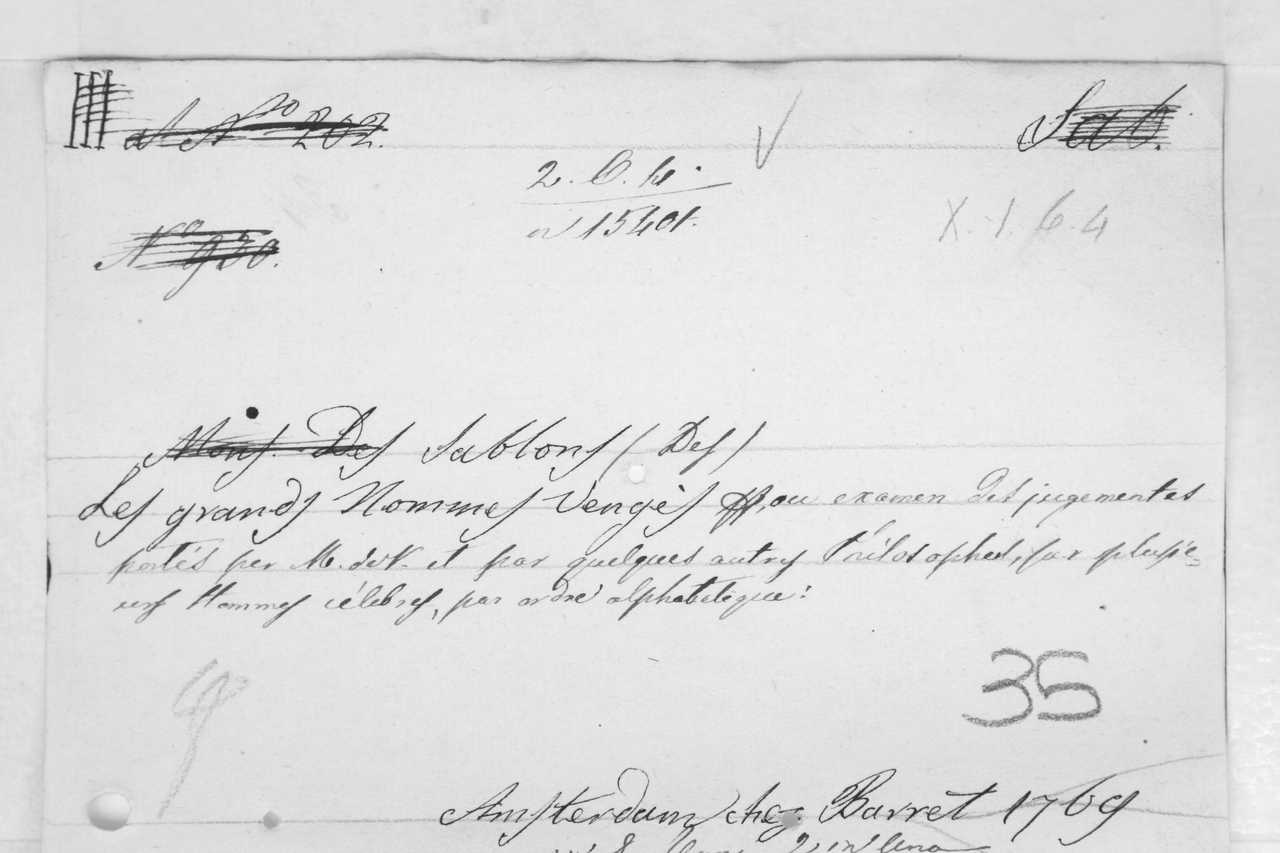 A No 202.
Sab.
2. C. h.
15401.
X. 1. 6. 4
No 930.
Mons. Des Sablons (Des)
Les grands Hommes Vengès, ou examen des jugementes
portés per M. de V. et par quelques autres Philosophes, sur plusie=
urs Hommes célebres, par ordre alphabetique:
35
Amsterdam chez Barret 1769